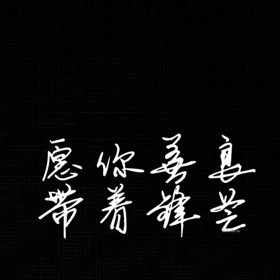 愿你善良
带着锋芒